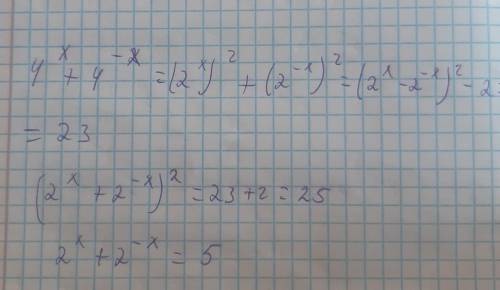 4^x + 4^-x = (2^x)^2 + (2^-x)^2 = (2^x - 2^-x)^2 - 2
= 23
(2^x + 2^-x)^2 = 23 + 2 = 25
2^x + 2^-x = 5